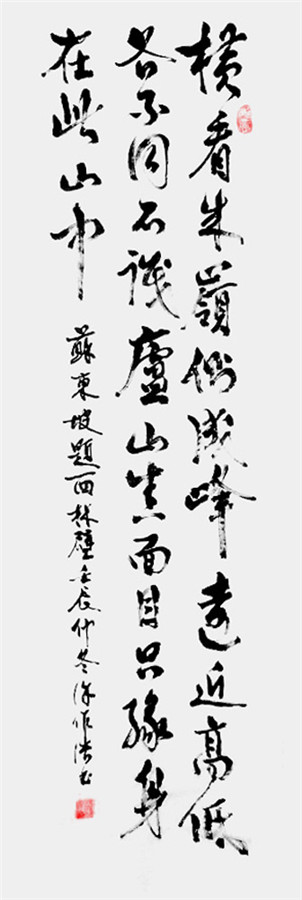 横看成嶺側成峰遠近高低
各不同不識廬山真面目只緣身
在此山中
蘇東坡題西林壁壬辰仲冬